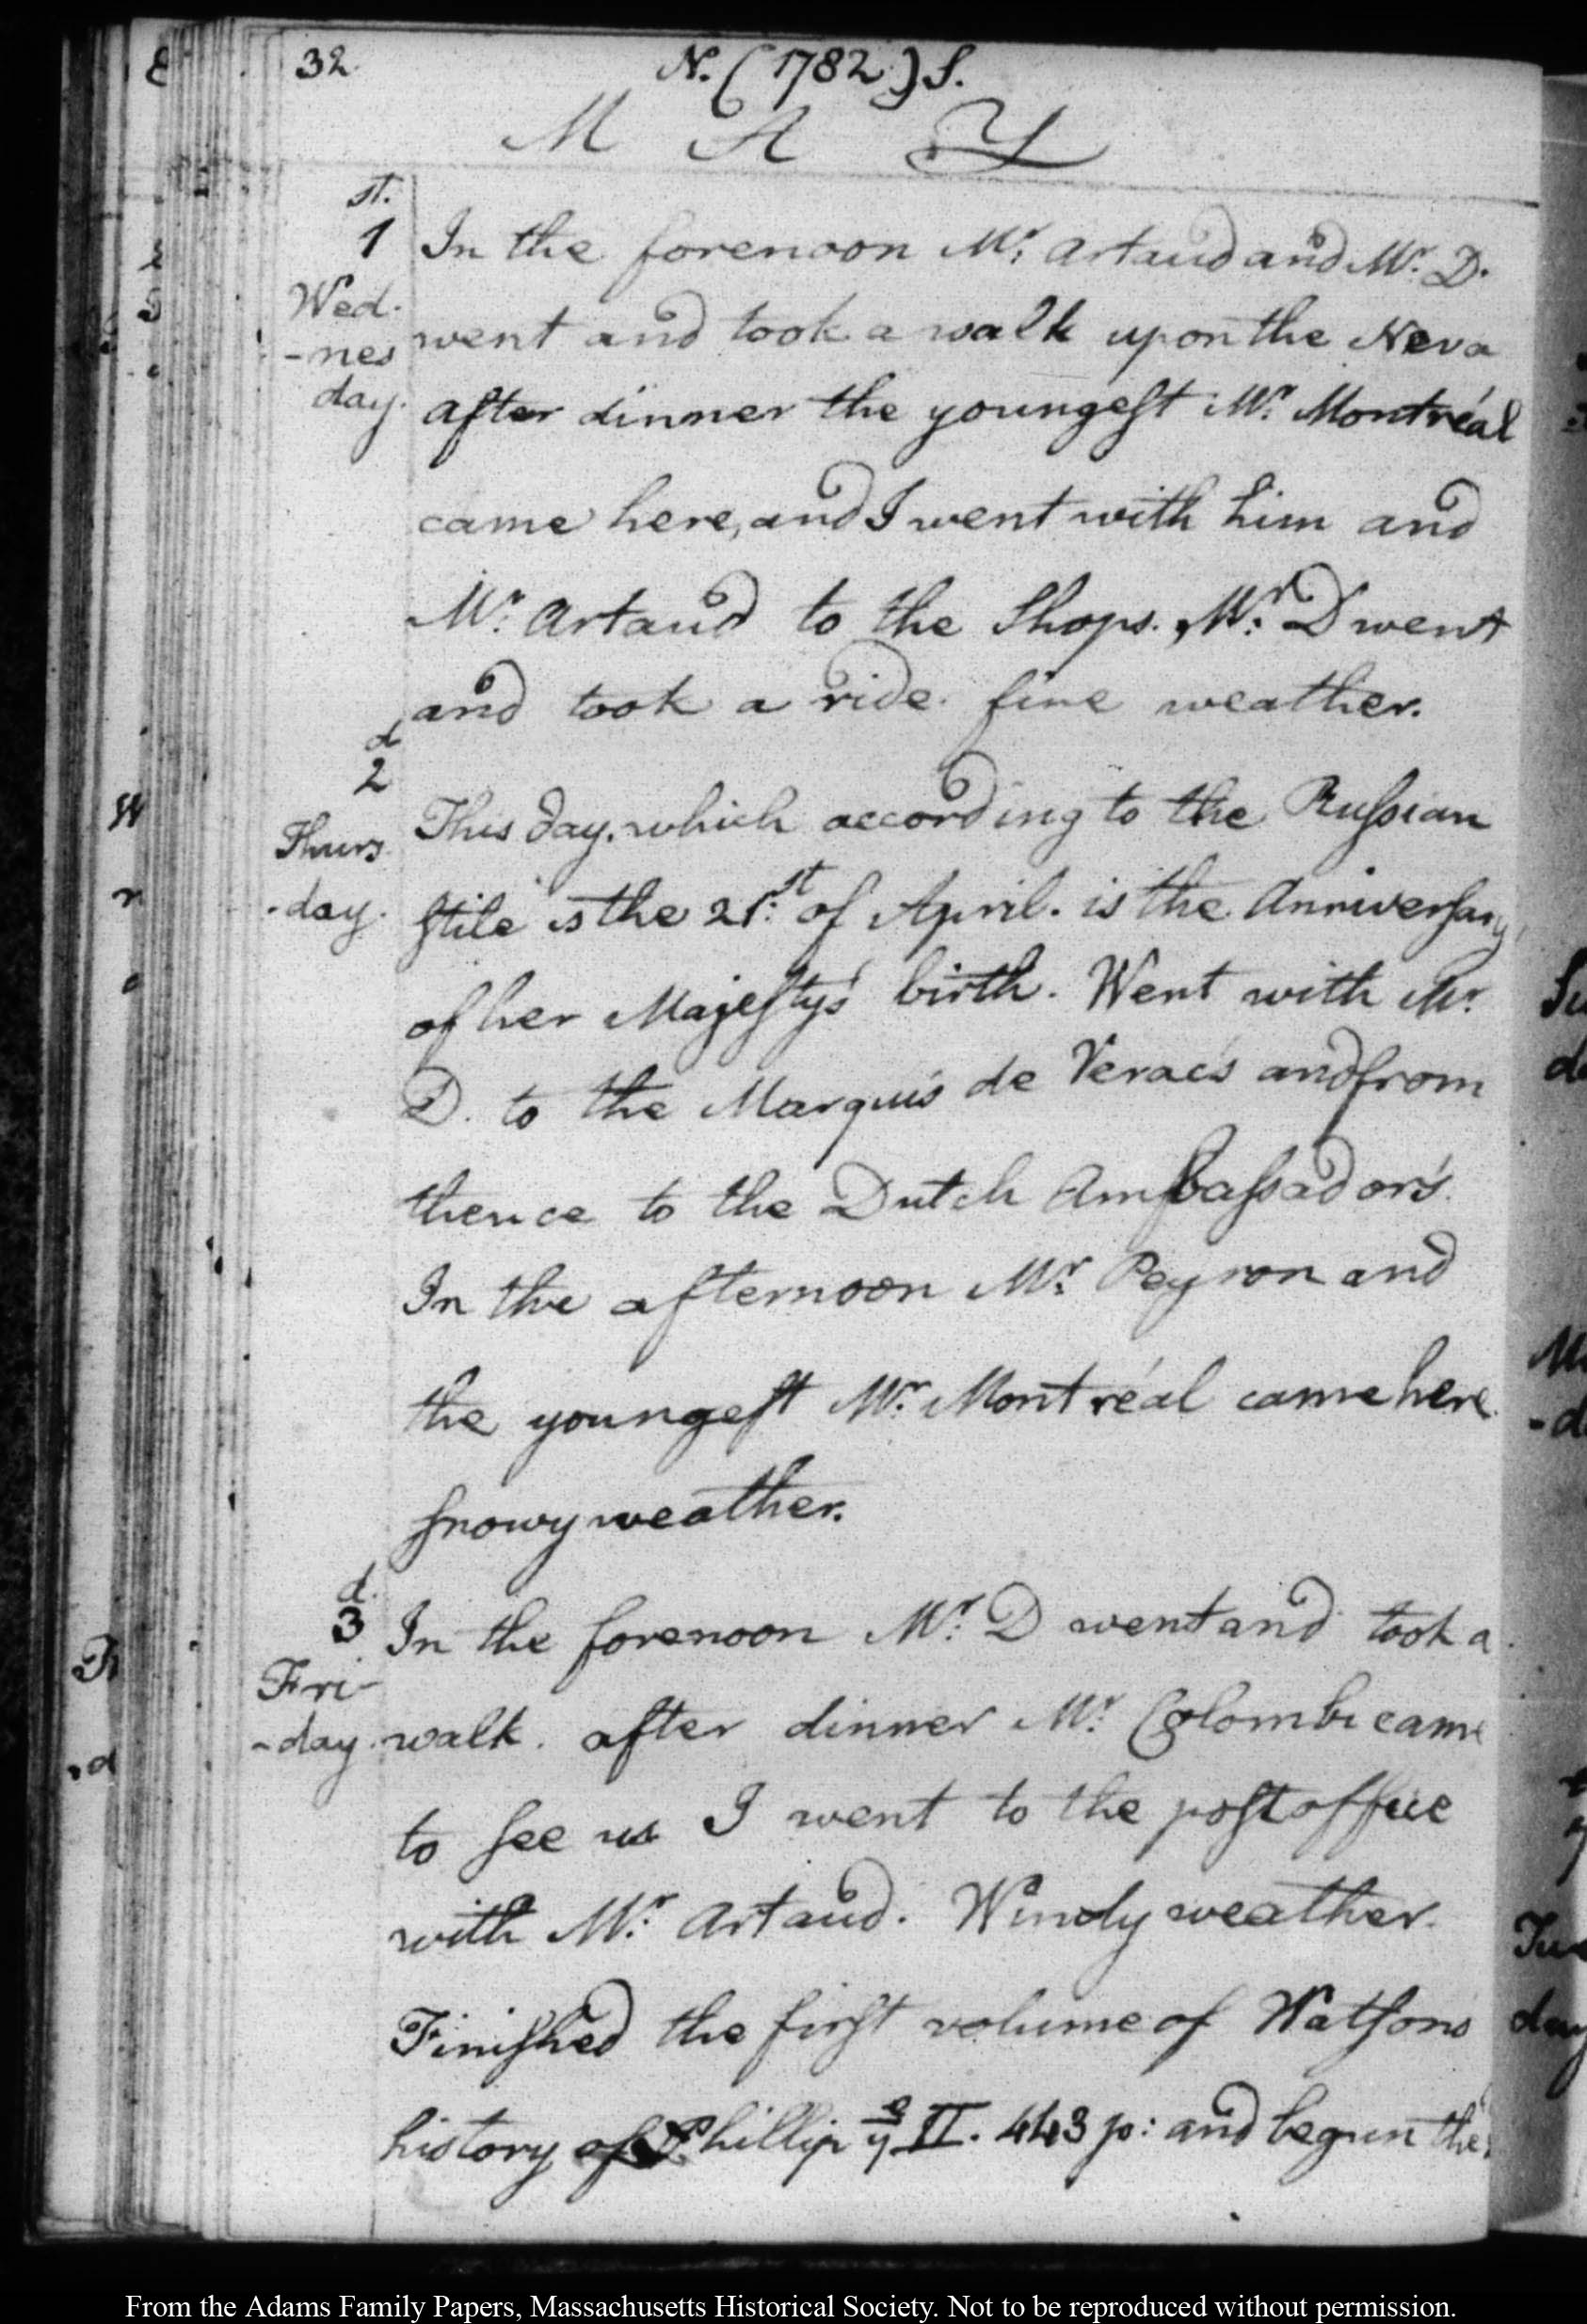 32
N. (1782) S.
M A Y
st.
1
Wed.
-nes
day.
In the forenoon Mr: Artaud and Mr. D.
went and took a walk upon the Neva
after dinner the youngest Mr. Montréal
came here, and I went with him and
Mr. Artaud to the Shops. Mr: D went
and took a ride. fine weather.
d
2
Thurs
-day.
This day. which according to the Russian
stile is the 21:st of April. is the Anniversary
of her Majesty's birth. Went with Mr.
D. to the Marquis de Verac's and from
thence to the Dutch Ambassador's.
In the afternoon Mr: Peyron and
the youngest Mr. Montréal came here.
snowy weather.
d.
3
Fri-
-day
In the forenoon Mr: D went and took a
walk. after dinner Mr: Colombi came
to see us I went to the post office
with Mr: Artaud. Windy weather.
Finished the first volume of Watsons
history of Phillip ye II. 443 p: and begun the
From the Adams Family Papers, Massachusetts Historical Society. Not to be reproduced without permission.